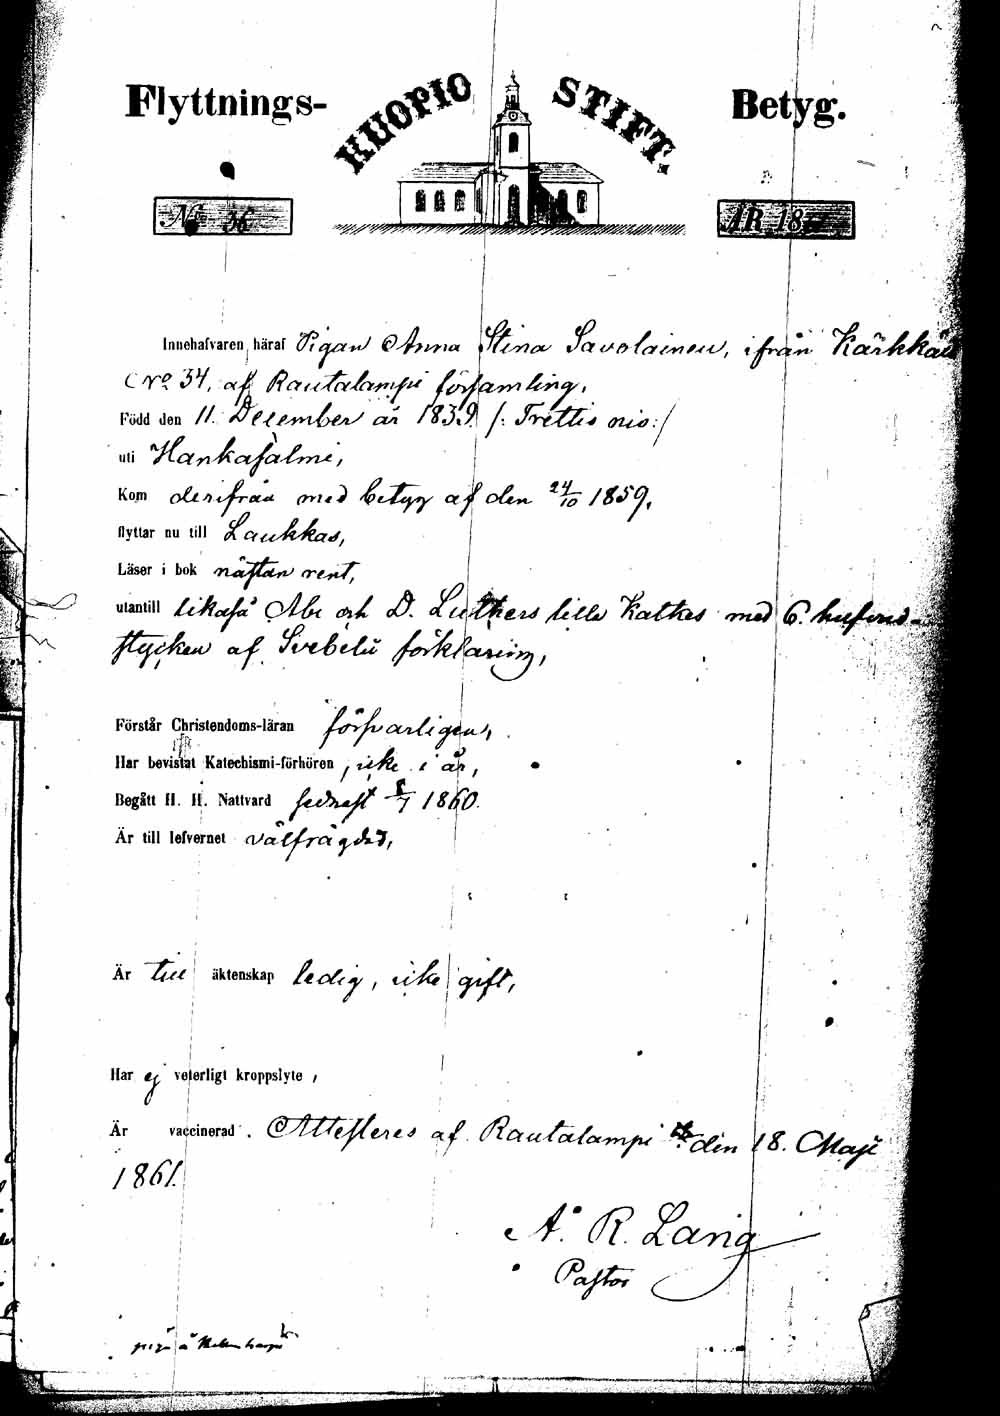 Flyttnings- KUOPIO STIFT. Betyg.
No 36 ÅR 18
Innehafvaren häraf Pigan Anna Stina Savolainen, ifrån
No 34, af Rautalampi församling,
Född den 11. December år 1839 /: Trettio nio :/
uti Hankasalmi,
Kom derifrån med betyg af den 24/10 1859,
flyttar nu till Laukkas,
Läser i bok nästan rent,
utantill likaså Abc och D. Luthers lilla Katkes med 6. hufvud-
stycken af Svebelii förklaring,
Förstår Christendoms-läran försvarligen,
Har bevistat Katechismi-förhören, icke i år,
Begått H. H. Nattvard sednast 8/7 1860.
Är till lefvernet välfrägdad,
Är till äktenskap ledig, icke gift,
Har ej veterligt kroppslyte,
Är vaccinerad. Attesteres af Rautalampi den 18. Maji
1861.
A. R. Lang
Pastor